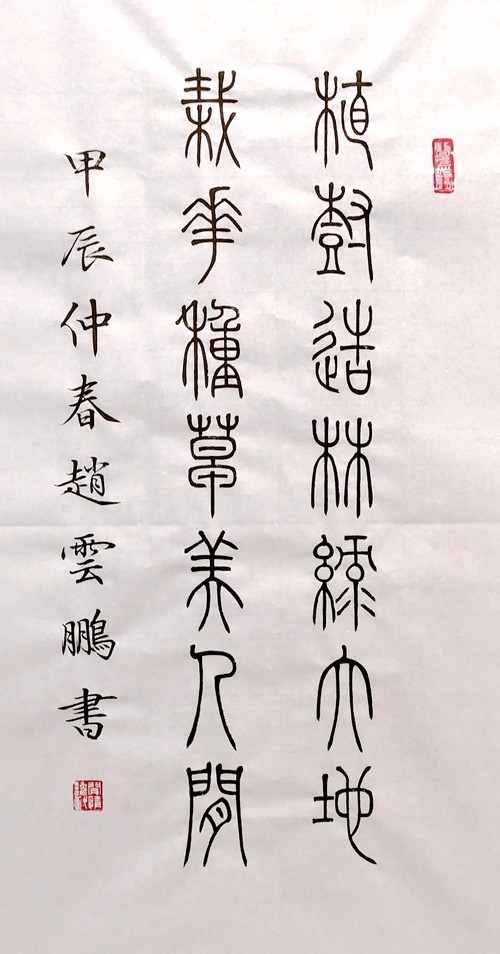 植樹造林綠大地
栽華種草美人間
甲辰仲春趙雲鵬書